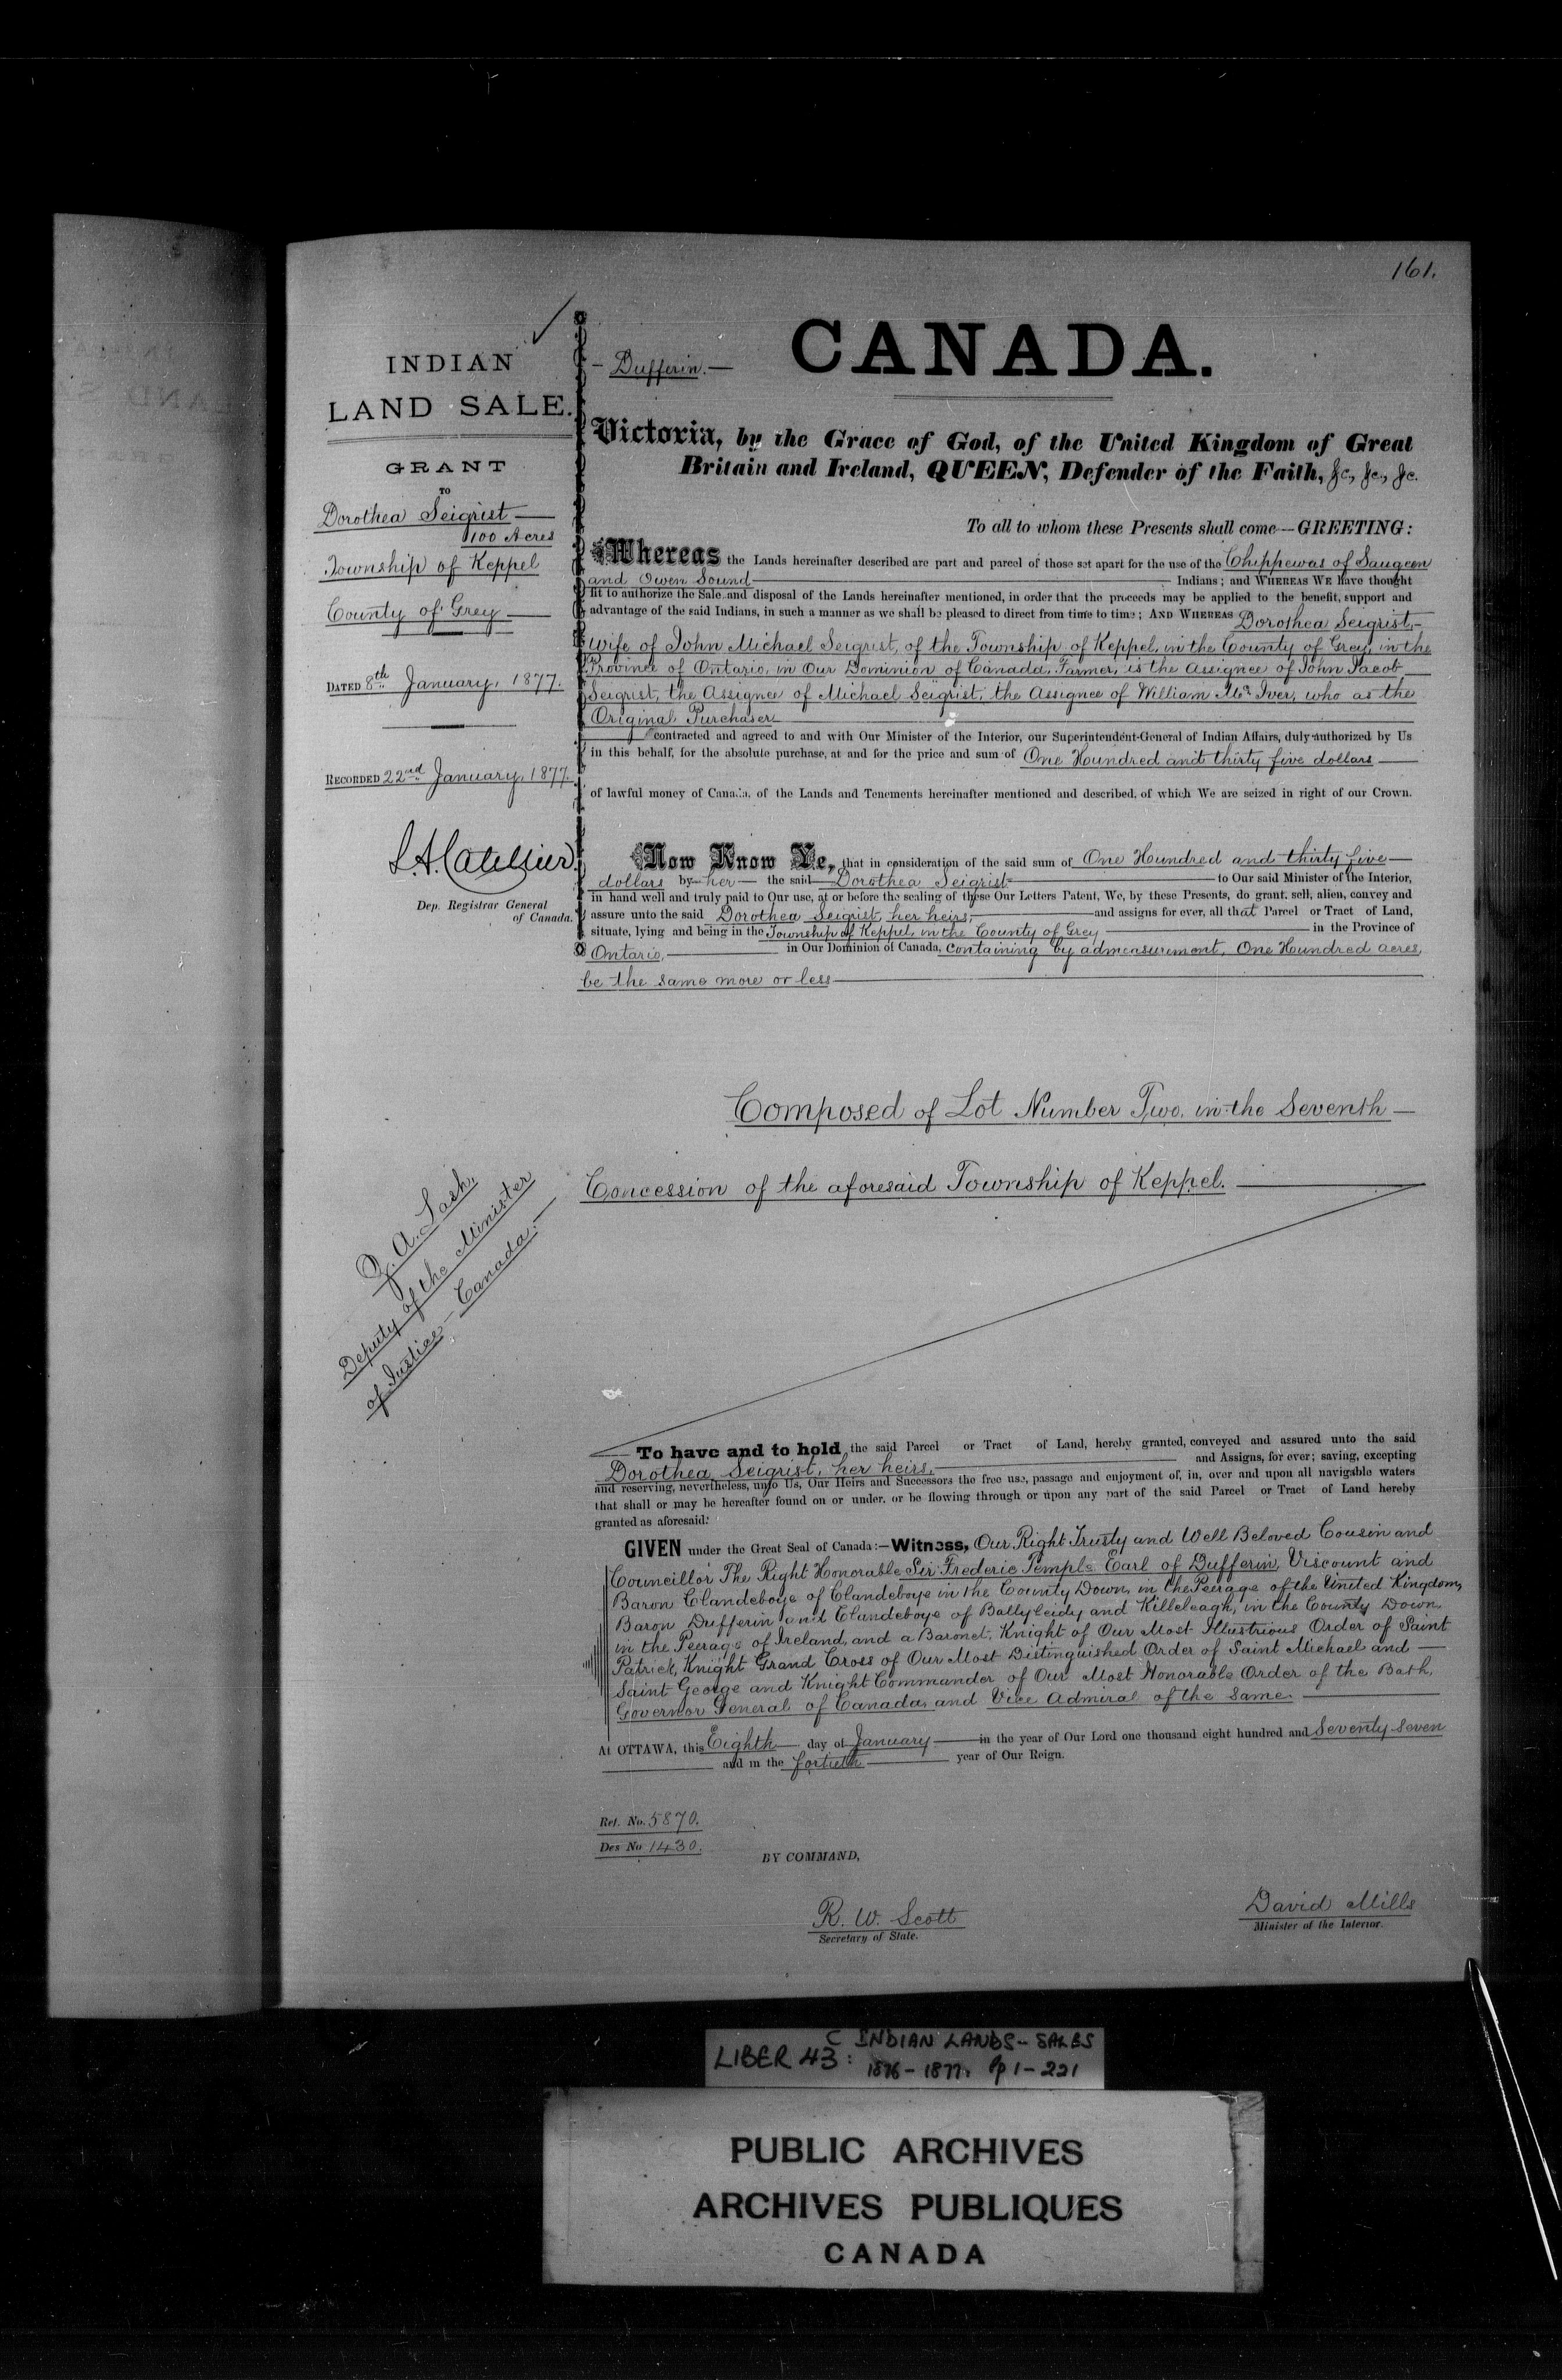 161.
INDIAN
LAND SALE.
GRANT
TO
Dorothea Seigrist
100 Acres
Township of Keppel
County of Grey
DATED 8th January, 1877.
RECORDED 22nd January, 1877.
Dep. Registrar General
of Canada.
Z. A. Lash,
Deputy of the Minister
of Justice - Canada.
- Dufferin. -
CANADA.
Victoria, by the Grace of God, of the United Kingdom of Great
Britain and Ireland, QUEEN, Defender of the Faith, &c., &c., &c.
To all to whom these Presents shall come—GREETING:
Whereas the Lands hereinafter described are part and parcel of those set apart for the use of the Chippewas of Saugeen
and Owen Sound Indians; and WHEREAS WE have thought
fit to authorize the Sale and disposal of the Lands hereinafter mentioned, in order that the proceeds may be applied to the benefit, support and
advantage of the said Indians, in such a manner as we shall be pleased to direct from time to time; AND WHEREAS Dorothea Seigrist,
Wife of John Michael Seigrist, of the Township of Keppel, in the County of Grey, in the
Province of Ontario, in Our Dominion of Canada, Farmer, is the Assignee of John Jacob
Seigrist, the Assignee of Michael Seigrist, the Assignee of William McIver, who as the
Original Purchaser
contracted and agreed to and with Our Minister of the Interior, our Superintendent-General of Indian Affairs, duly authorized by Us
in this behalf, for the absolute purchase, at and for the price and sum of One Hundred and thirty five dollars
of lawful money of Canada, of the Lands and Tenements hereinafter mentioned and described, of which We are seized in right of our Crown.
Now Know Ye, that in consideration of the said sum of One Hundred and thirty five
dollars by her the said Dorothea Seigrist to Our said Minister of the Interior,
in hand well and truly paid to Our use, at or before the sealing of these Our Letters Patent, We, by these Presents, do grant, sell, alien, convey and
assure unto the said Dorothea Seigrist, her heirs, and assigns for ever, all that Parcel or Tract of Land,
situate, lying and being in the Township of Keppel, in the County of Grey in the Province of
Ontario, in Our Dominion of Canada, containing by admeasurement, One Hundred acres,
be the same more or less
Composed of Lot Number Two, in the Seventh
Concession of the aforesaid Township of Keppel.
To have and to hold the said Parcel or Tract of Land, hereby granted, conveyed and assured unto the said
Dorothea Seigrist, her heirs, and Assigns, for ever; saving, excepting
and reserving, nevertheless, unto Us, Our Heirs and Successors the free use, passage and enjoyment of, in, over and upon all navigable waters
that shall or may be hereafter found on or under, or be flowing through or upon any part of the said Parcel or Tract of Land hereby
granted as aforesaid:
GIVEN under the Great Seal of Canada:—Witness, Our Right Trusty and Well Beloved Cousin and
Councillor The Right Honorable Sir Frederic Temple Earl of Dufferin, Viscount and
Baron Clandeboye of Clandeboye in the County Down, in the Peerage of the United Kingdom,
Baron Dufferin and Clandeboye of Ballyleidy and Killeleagh, in the County Down,
in the Peerage of Ireland, and a Baronet, Knight of Our Most Illustrious Order of Saint
Patrick, Knight Grand Cross of Our Most Distinguished Order of Saint Michael and
Saint George and Knight Commander of Our Most Honorable Order of the Bath,
Governor General of Canada, and Vice Admiral of the Same.
At OTTAWA, this Eighth day of January in the year of Our Lord one thousand eight hundred and Seventy-Seven
and in the fortieth year of Our Reign.
Ref. No. 5870.
Des No 1430.
BY COMMAND,
R. W. Scott
Secretary of State.
David Mills
Minister of the Interior.
LIBER 43: C INDIAN LANDS - SALES
1876 - 1877. pp 1 - 221
PUBLIC ARCHIVES
ARCHIVES PUBLIQUES
CANADA